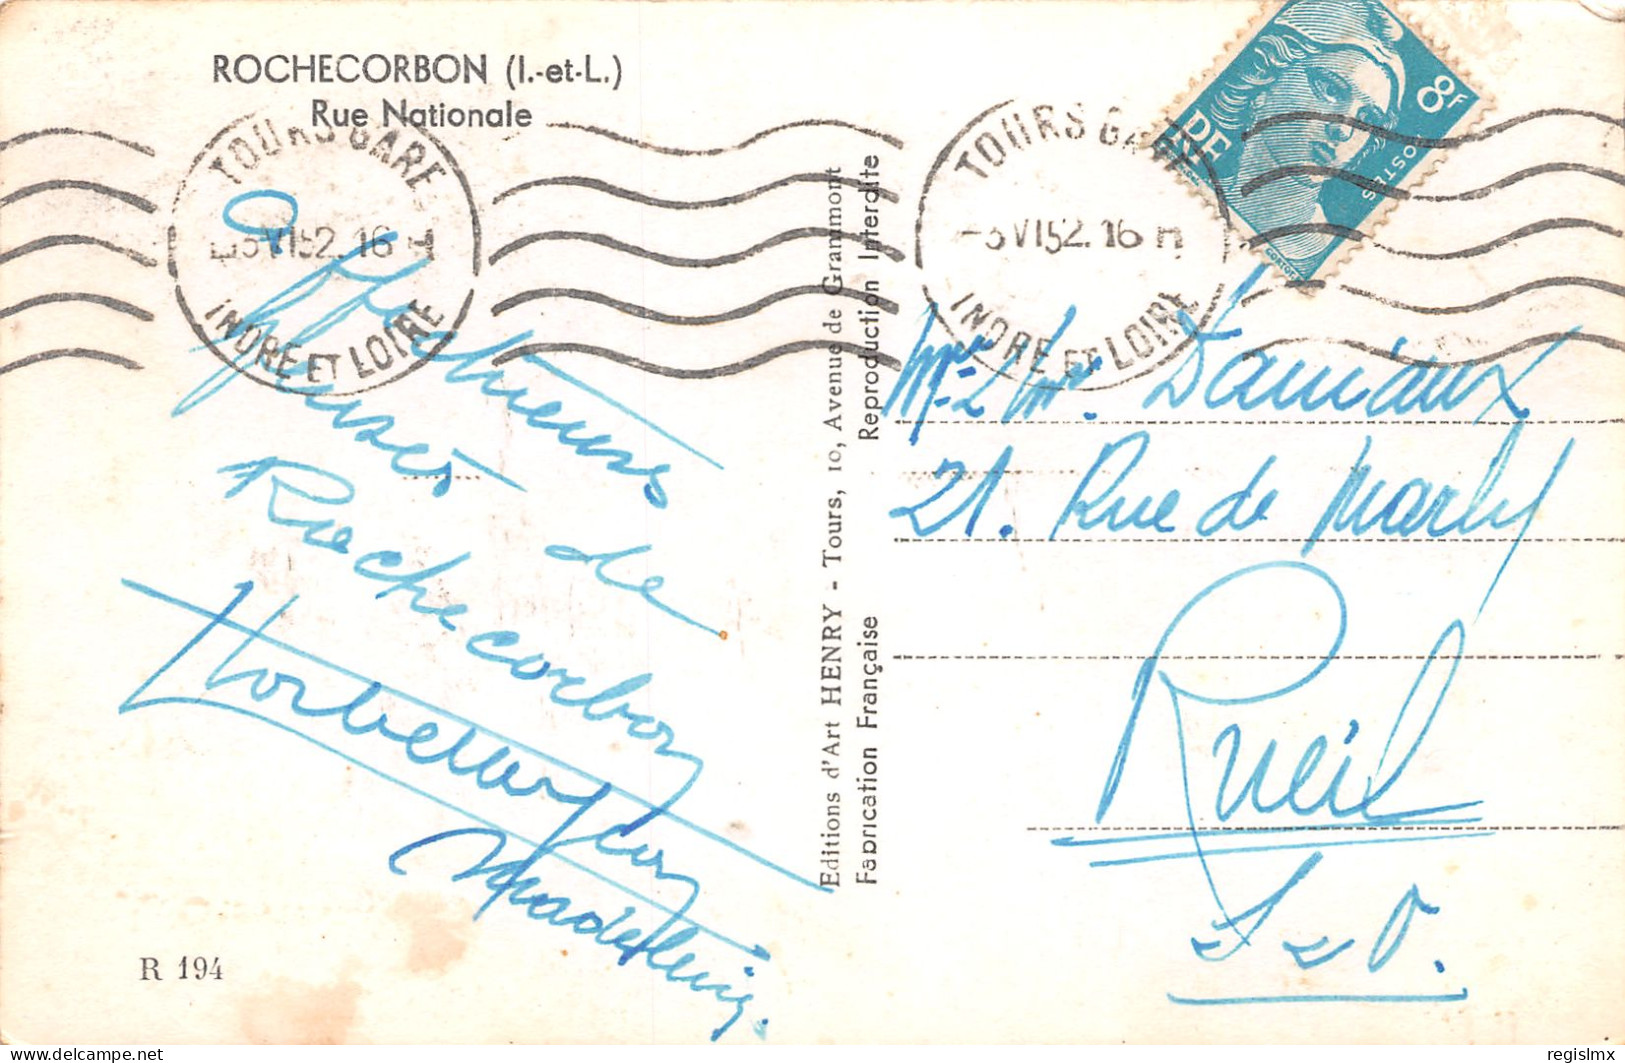 ROCHECORBON (I.-et-L.)
Rue Nationale
TOURS GARE
-3 VI 52. 16 H
INDRE ET LOIRE
TOURS GARE
-3 VI 52. 16 H
INDRE ET LOIRE
RF
8F
POSTES
Affectueuses
pensées de
Rochecorbon
Madeleine.
R 194
Editions d'Art HENRY - Tours, 10, Avenue de Grammont
Fabrication Française
Reproduction Interdite
21. Rue de Marly
Rueil
S & O.
delcampe.net
regislmx